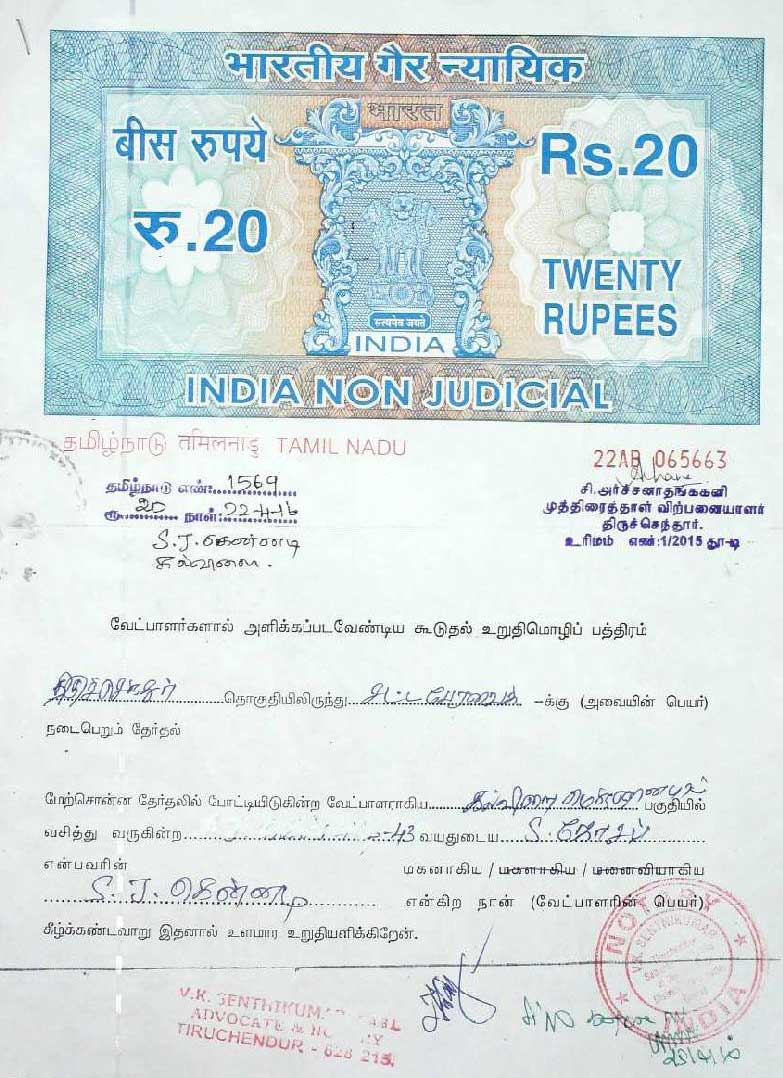 भारतीय गैर न्यायिक
भारत
बीस रुपये
Rs.20
रु.20
TWENTY
RUPEES
सत्यमेव जयते
INDIA
INDIA NON JUDICIAL
தமிழ்நாடு तमिलनाडु TAMIL NADU
22AB 065663
தமிழ்நாடு எண்: 1569
ரூ. 20 நாள்: 22-4-16
S.J. கென்னடி
கல்விளை.
சி.அர்ச்சனாதங்ககனி
முத்திரைத்தாள் விற்பனையாளர்
திருச்செந்தூர்.
உரிமம் எண்:1/2015 தூ-டி
வேட்பாளர்களால் அளிக்கப்படவேண்டிய கூடுதல் உறுதிமொழிப் பத்திரம்
திருச்செந்தூர் தொகுதியிலிருந்து சட்ட பேரவைக் –க்கு (அவையின் பெயர்)
நடைபெறும் தேர்தல்
மேற்சொன்ன தேர்தலில் போட்டியிடுகின்ற வேட்பாளராகிய பகுதியில்
வசித்து வருகின்ற 43 வயதுடைய S. ஜோசப்
என்பவரின் மகனாகிய / மகளாகிய / மனைவியாகிய
S. J. கென்னடி என்கிற நான் (வேட்பாளரின் பெயர்)
கீழ்க்கண்டவாறு இதனால் உளமார உறுதியளிக்கிறேன்.
NOTARY
V.K. SENTHIKUMAR
INDIA
V.K. SENTHIKUMAR
ADVOCATE & NOTARY
TIRUCHENDUR - 628 215.